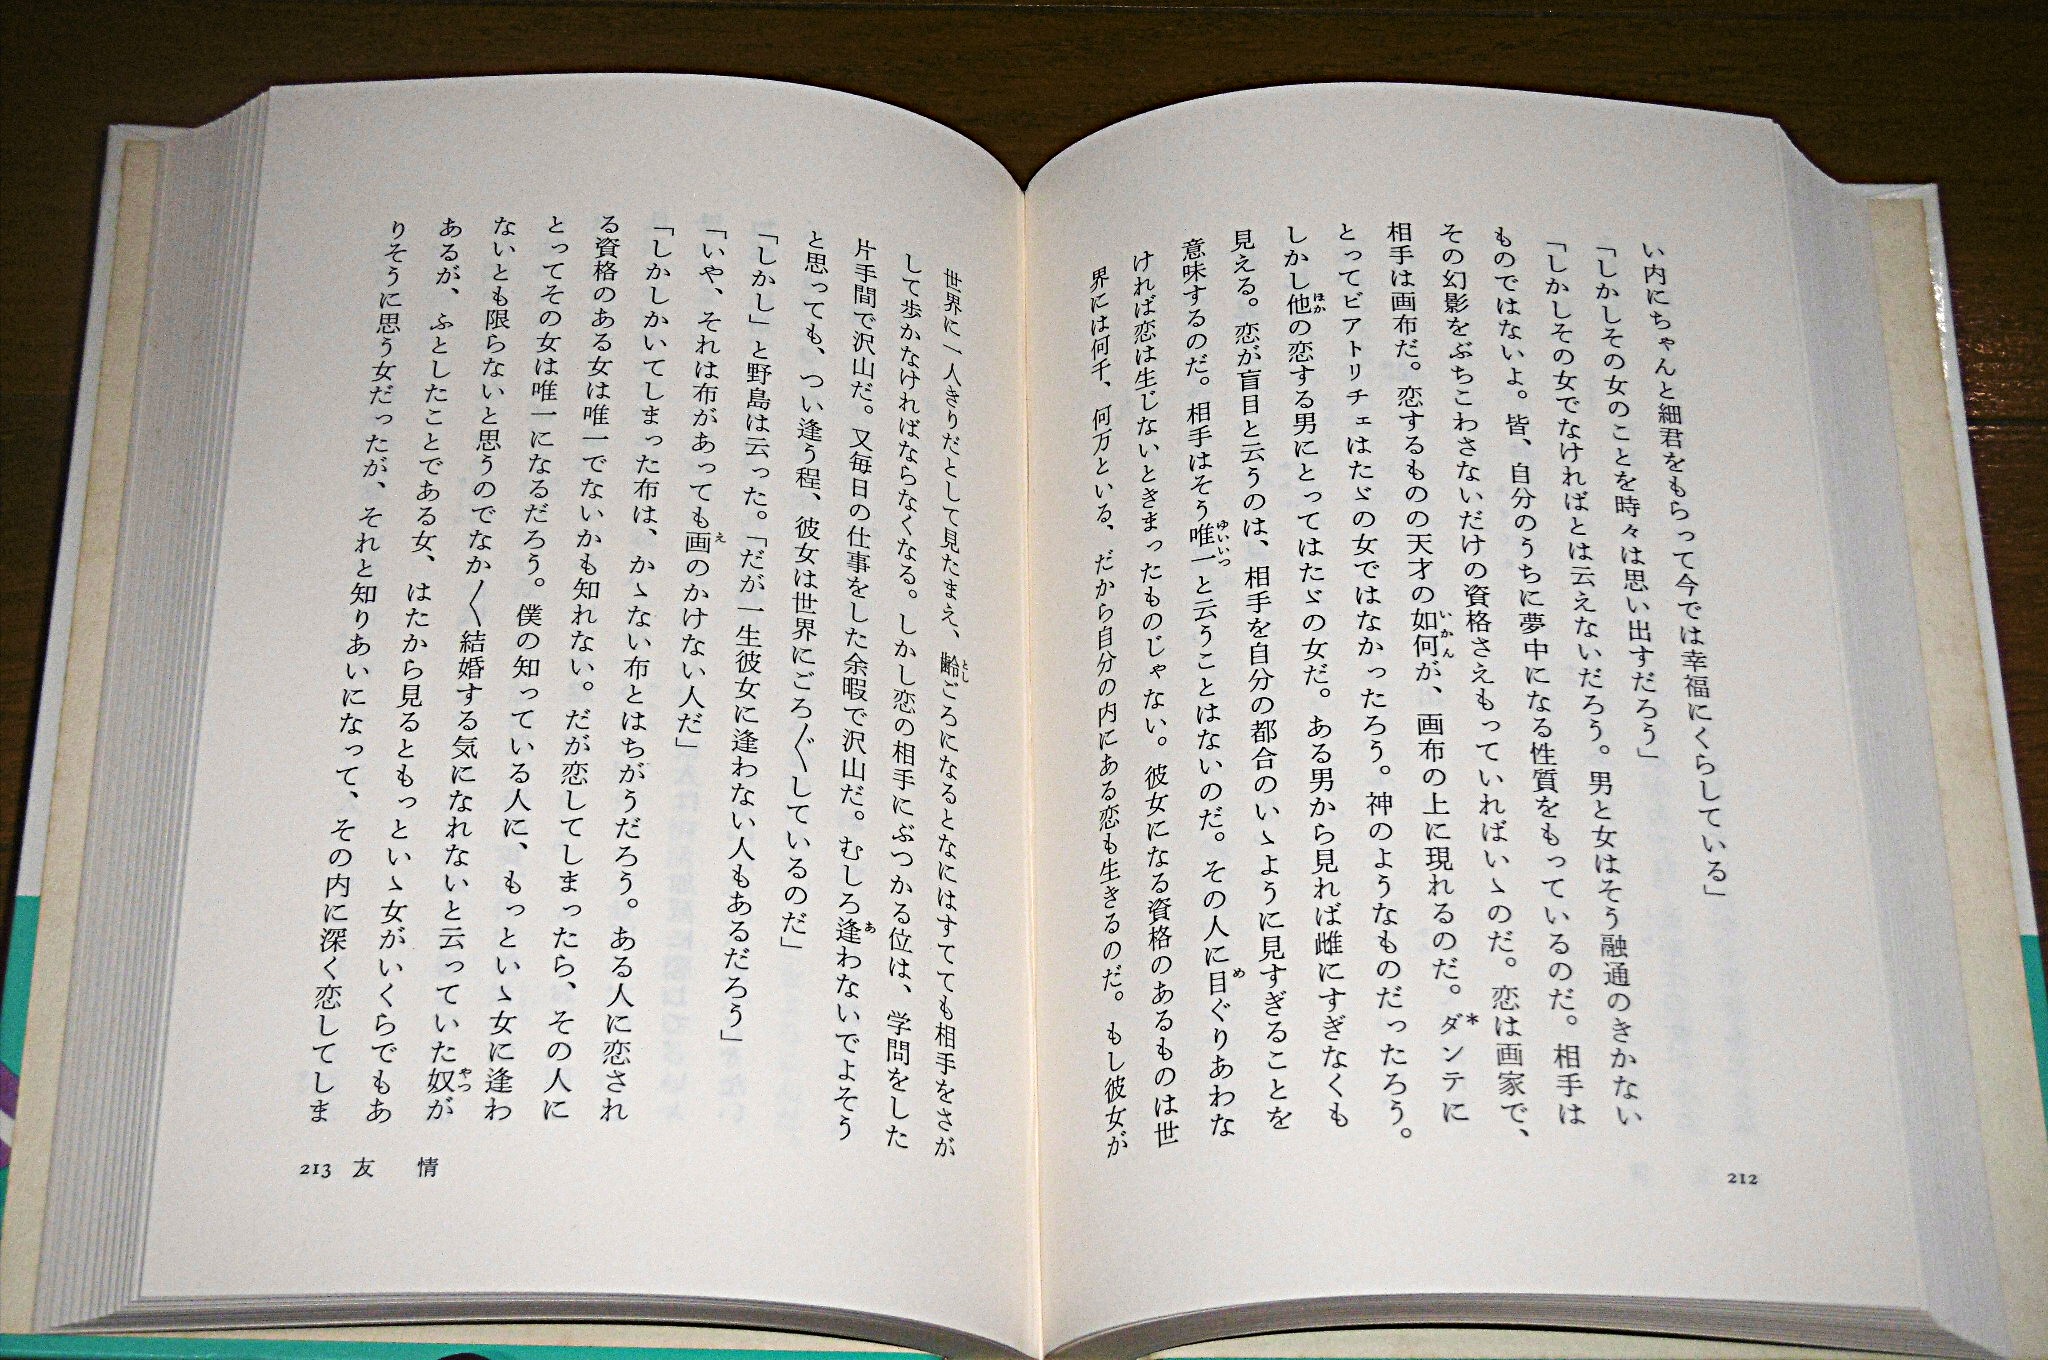 い内にちゃんと細君をもらって今では幸福にくらしている」
「しかしその女のことを時々は思い出すだろう」
「しかしその女でなければとは云えないだろう。男と女はそう融通のきかない
ものではないよ。皆、自分のうちに夢中になる性質をもっているのだ。相手は
その幻影をぶちこわさないだけの資格さえもっていればいゝのだ。恋は画家で、
相手は画布だ。恋するものの天才の如何が、画布の上に現れるのだ。ダンテに
いかん
*
とってビアトリチェはたゞの女ではなかったろう。神のようなものだったろう。
しかし他の恋する男にとってはたゞの女だ。ある男から見れば雌にすぎなくも
ほか
見える。恋が盲目と云うのは、相手を自分の都合のいゝように見すぎることを
意味するのだ。相手はそう唯一と云うことはないのだ。その人に目ぐりあわな
ゆいいつ
め
ければ恋は生じないときまったものじゃない。彼女になる資格のあるものは世
界には何千、何万といる、だから自分の内にある恋も生きるのだ。もし彼女が
212
世界に一人きりだとして見たまえ、齢ごろになるとなにはすてても相手をさが
とし
して歩かなければならなくなる。しかし恋の相手にぶつかる位は、学問をした
片手間で沢山だ。又毎日の仕事をした余暇で沢山だ。むしろ逢わないでよそう
あ
と思っても、つい逢う程、彼女は世界にごろ〳〵しているのだ」
「しかし」と野島は云った。「だが一生彼女に逢わない人もあるだろう」
「いや、それは布があっても画のかけない人だ」
え
「しかしかいてしまった布は、かゝない布とはちがうだろう。ある人に恋され
る資格のある女は唯一でないかも知れない。だが恋してしまったら、その人に
とってその女は唯一になるだろう。僕の知っている人に、もっといゝ女に逢わ
ないとも限らないと思うのでなか〳〵結婚する気になれないと云っていた奴が
やつ
あるが、ふとしたことである女、はたから見るともっといゝ女がいくらでもあ
りそうに思う女だったが、それと知りあいになって、その内に深く恋してしま
213 友 情